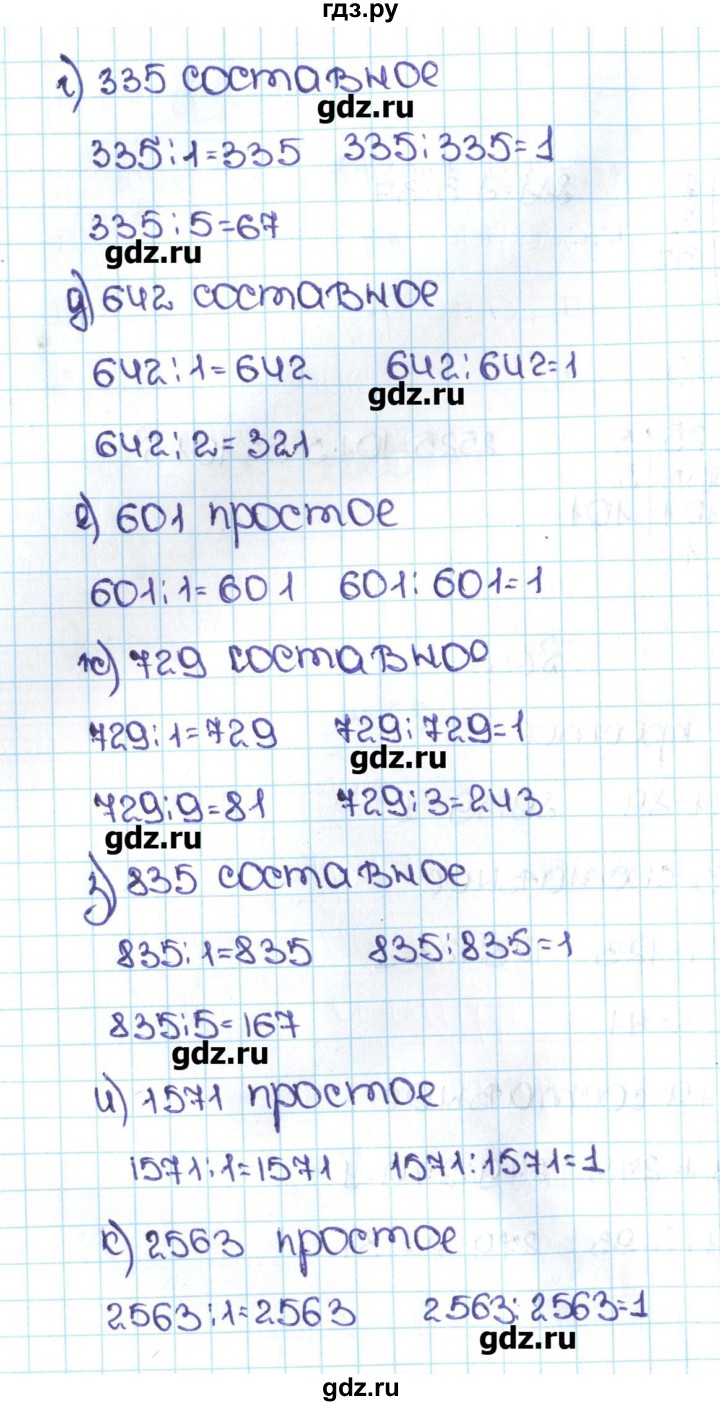 гдз.ру
г) 335 составное
gdz.ru
335:1=335 335:335=1
335:5=67
gdz.ru
д) 642 составное
642:1=642 642:642=1
gdz.ru
642:2=321
е) 601 простое
601:1=601 601:601=1
ж) 729 составное
729:1=729 729:729=1
gdz.ru
729:9=81 729:3=243
gdz.ru
з) 835 составное
835:1=835 835:835=1
835:5=167
gdz.ru
и) 1571 простое
1571:1=1571 1571:1571=1
к) 2563 простое
2563:1=2563 2563:2563=1
gdz.ru
gdz.ru